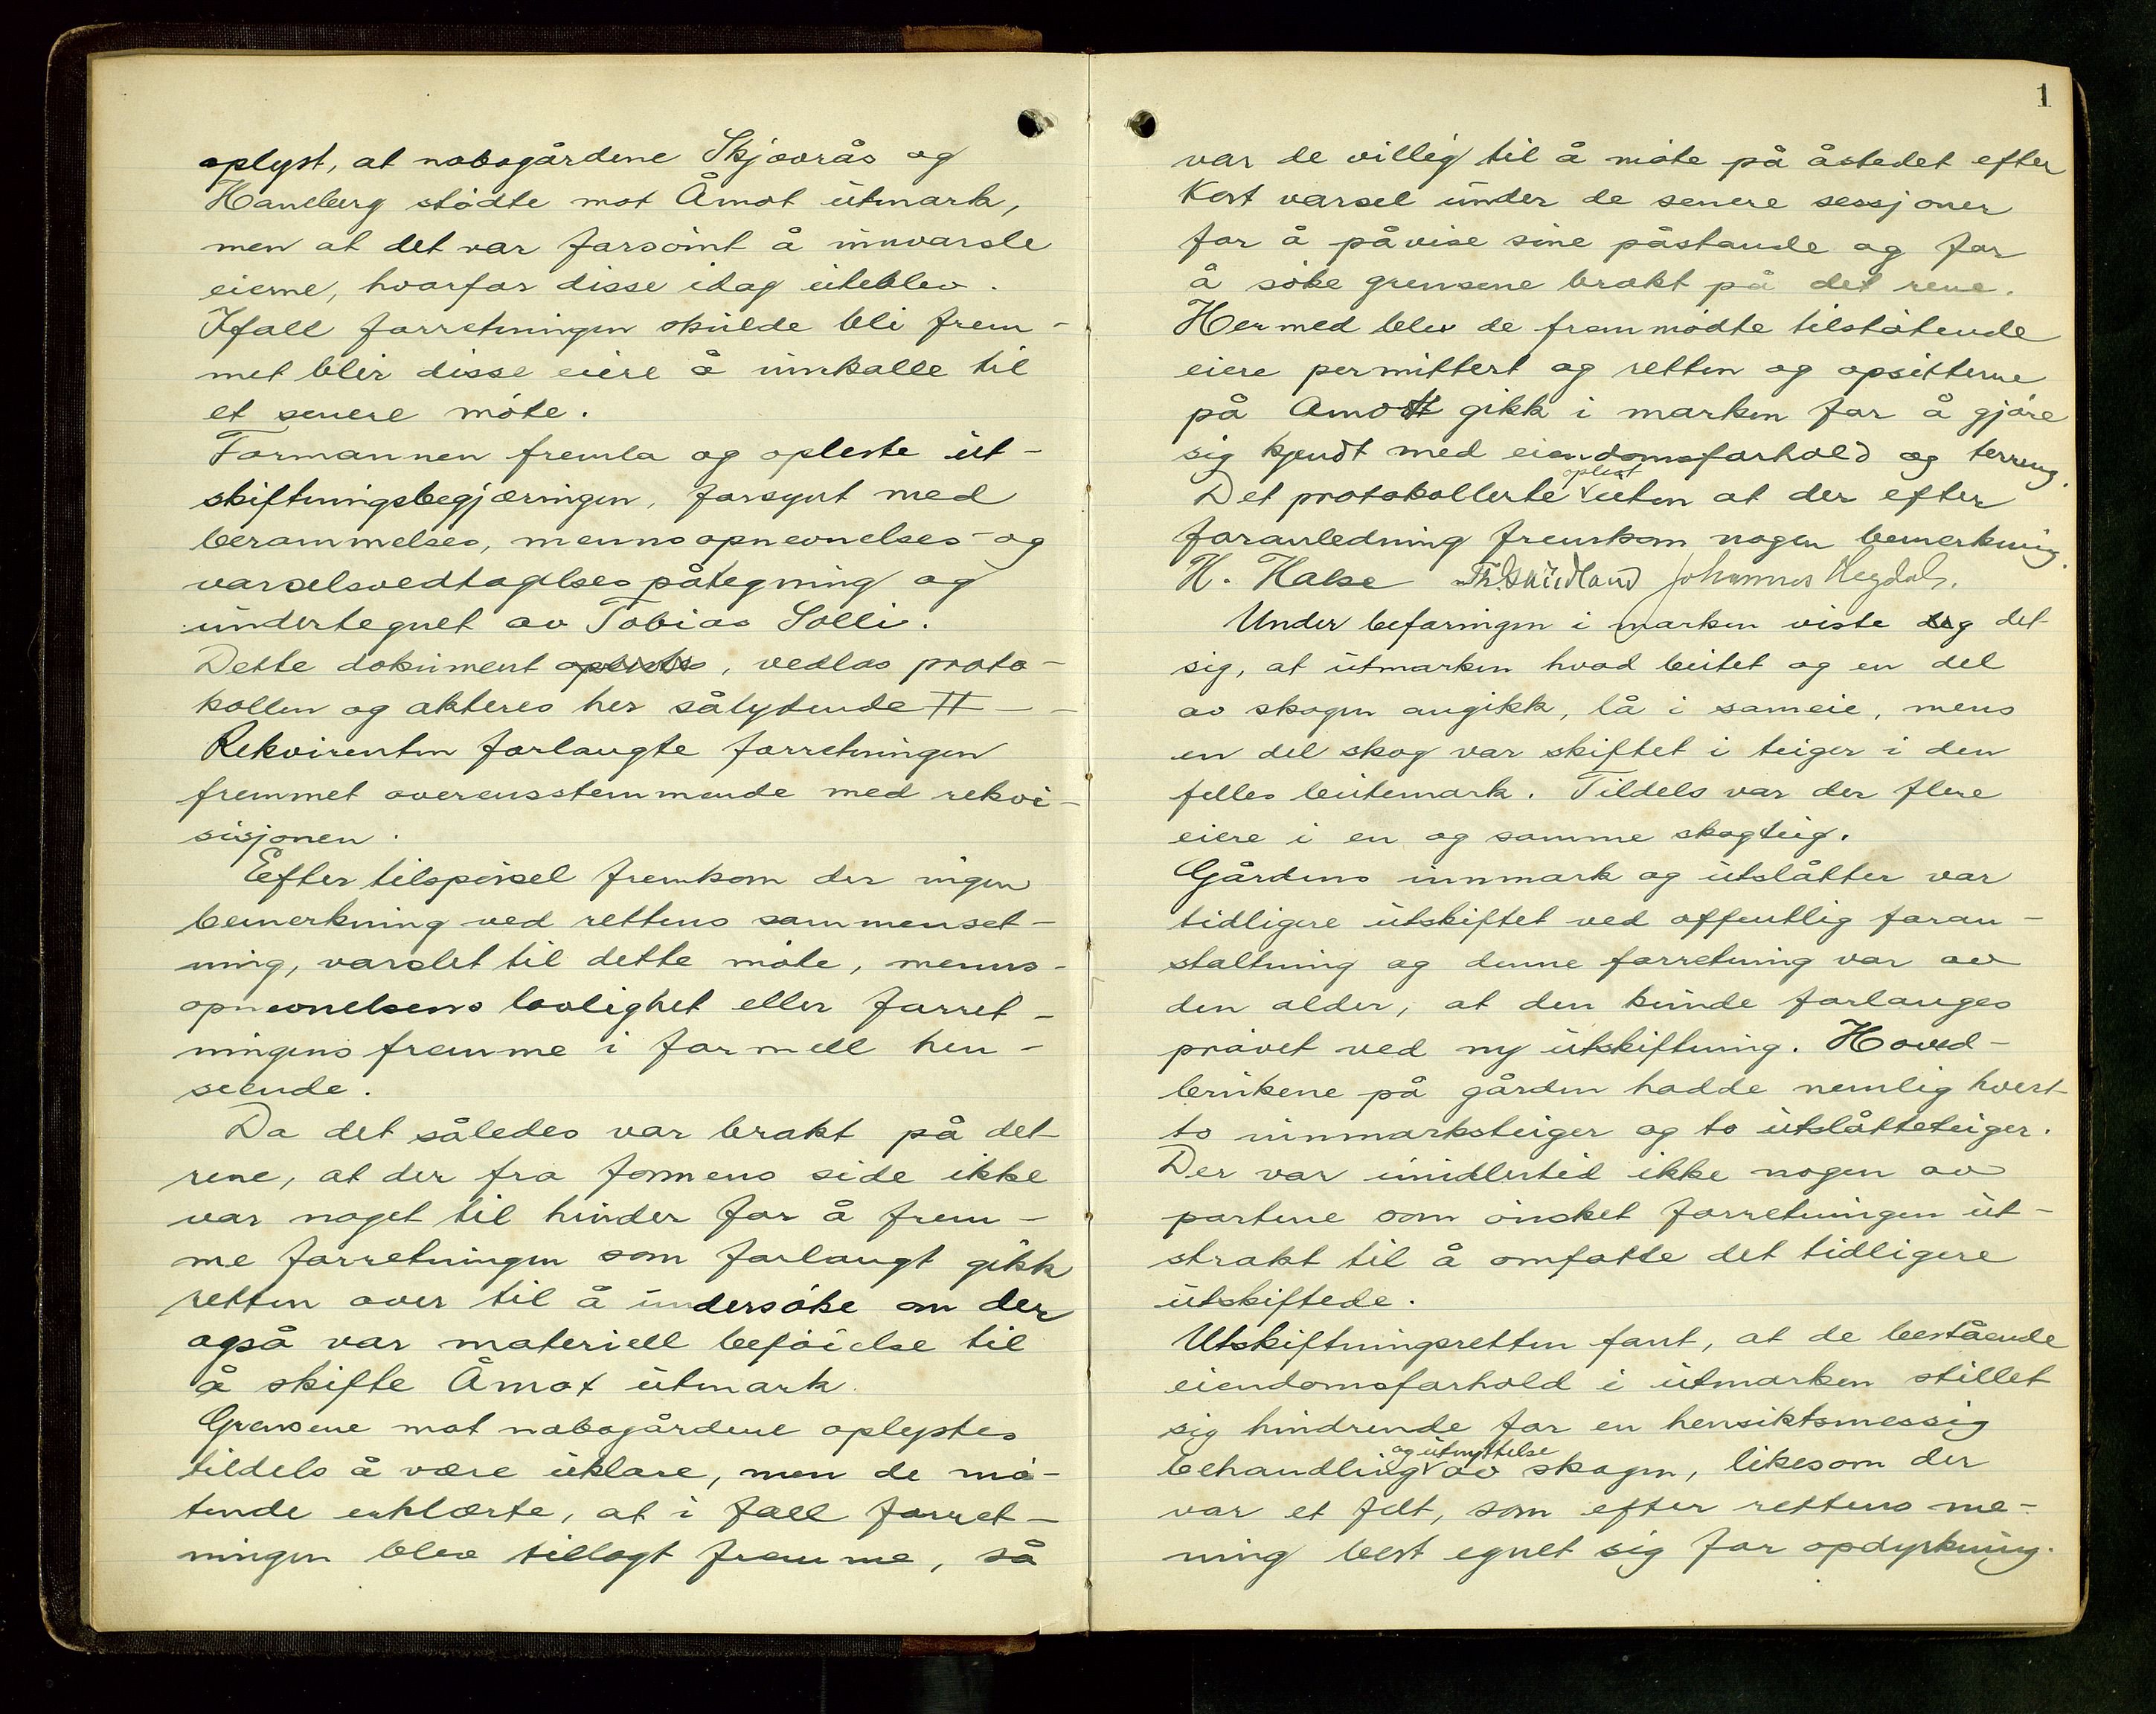 oplyst, at nabogårdene Skjævrås og
Haneberg stödte mot Åmot utmark,
men at det var forsömt å innvarsle
eierne, hvorfor disse idag uteblev.
Ifall forretningen skulde bli frem-
met blir disse eiere å innkalle til
et senere möte.
Formannen fremla og opleste ut-
skiftningsbegjæringen, forsynt med
berammelses, mennsopnevnelses- og
varselsvedtagelses påtegning og
undertegnet av Tobias Solli.
Dette dokument oplestes, vedlas proto-
kollen og akteres her sålydende #—
Rekvirenten forlangte forretningen
fremmet overensstemmende med rekvi-
sisjonen.
Efter tilspörsel fremkom der ingen
bemerkning ved rettens sammenset-
ning, varslet til dette möte, menns-
opnevnelsens lovlighet eller forret-
ningens fremme i formell hen-
seende.
Da det således var brakt på det
rene, at der fra formens side ikke
var noget til hinder for å frem-
me forretningen som forlangt gikk
retten over til å undersöke om der
også var materiell beföielse til
å skifte Åmot utmark.
Grensene mot nabogårdene oplystes
tildels å være uklare, men de mö-
tende erklærte, at i fall forret-
ningen blev tillagt fremme, så
1
var de villig til å möte på åstedet efter
kort varsel under de senere sessjoner
for å påvise sine påstande og for
å söke grensene brakt på det rene.
Hermed blev de fremmödte tilstötende
eiere permittert og retten og opsitterne
på Amot gikk i marken for å gjöre
sig kjendt med eiendomsforhold og terreng.
oplest
Det protokollerte uten at der efter
foranledning fremkom nogen bemerkning.
H. Halse Th. Skudland Johannes Hegdal.
Under befaringen i marken viste det
sig, at utmarken hvad beitet og en del
av skogen angikk, lå i sameie, mens
en del skog var skiftet i teiger i den
felles beitemark. Tildels var der flere
eiere i en og samme skogteig.
Gårdens innmark og utslåtter var
tidligere utskiftet ved offentlig foran-
staltning og denne forretning var av
den alder, at den kunde forlanges
prövet ved ny utskiftning. Hoved-
brukene på gården hadde nemlig hvert
to innmarksteiger og to utslåtteteiger.
Der var imidlertid ikke nogen av
partene som önsket forretningen ut-
strakt til å omfatte det tidligere
utskiftede.
Utskiftningsretten fant, at de bestående
eiendomsforhold i utmarken stillet
sig hindrende for en hensiktsmessig
og utnyttelse
behandling av skogen, likesom der
var et felt, som efter rettens me-
ning best egnet sig for opdyrkning.